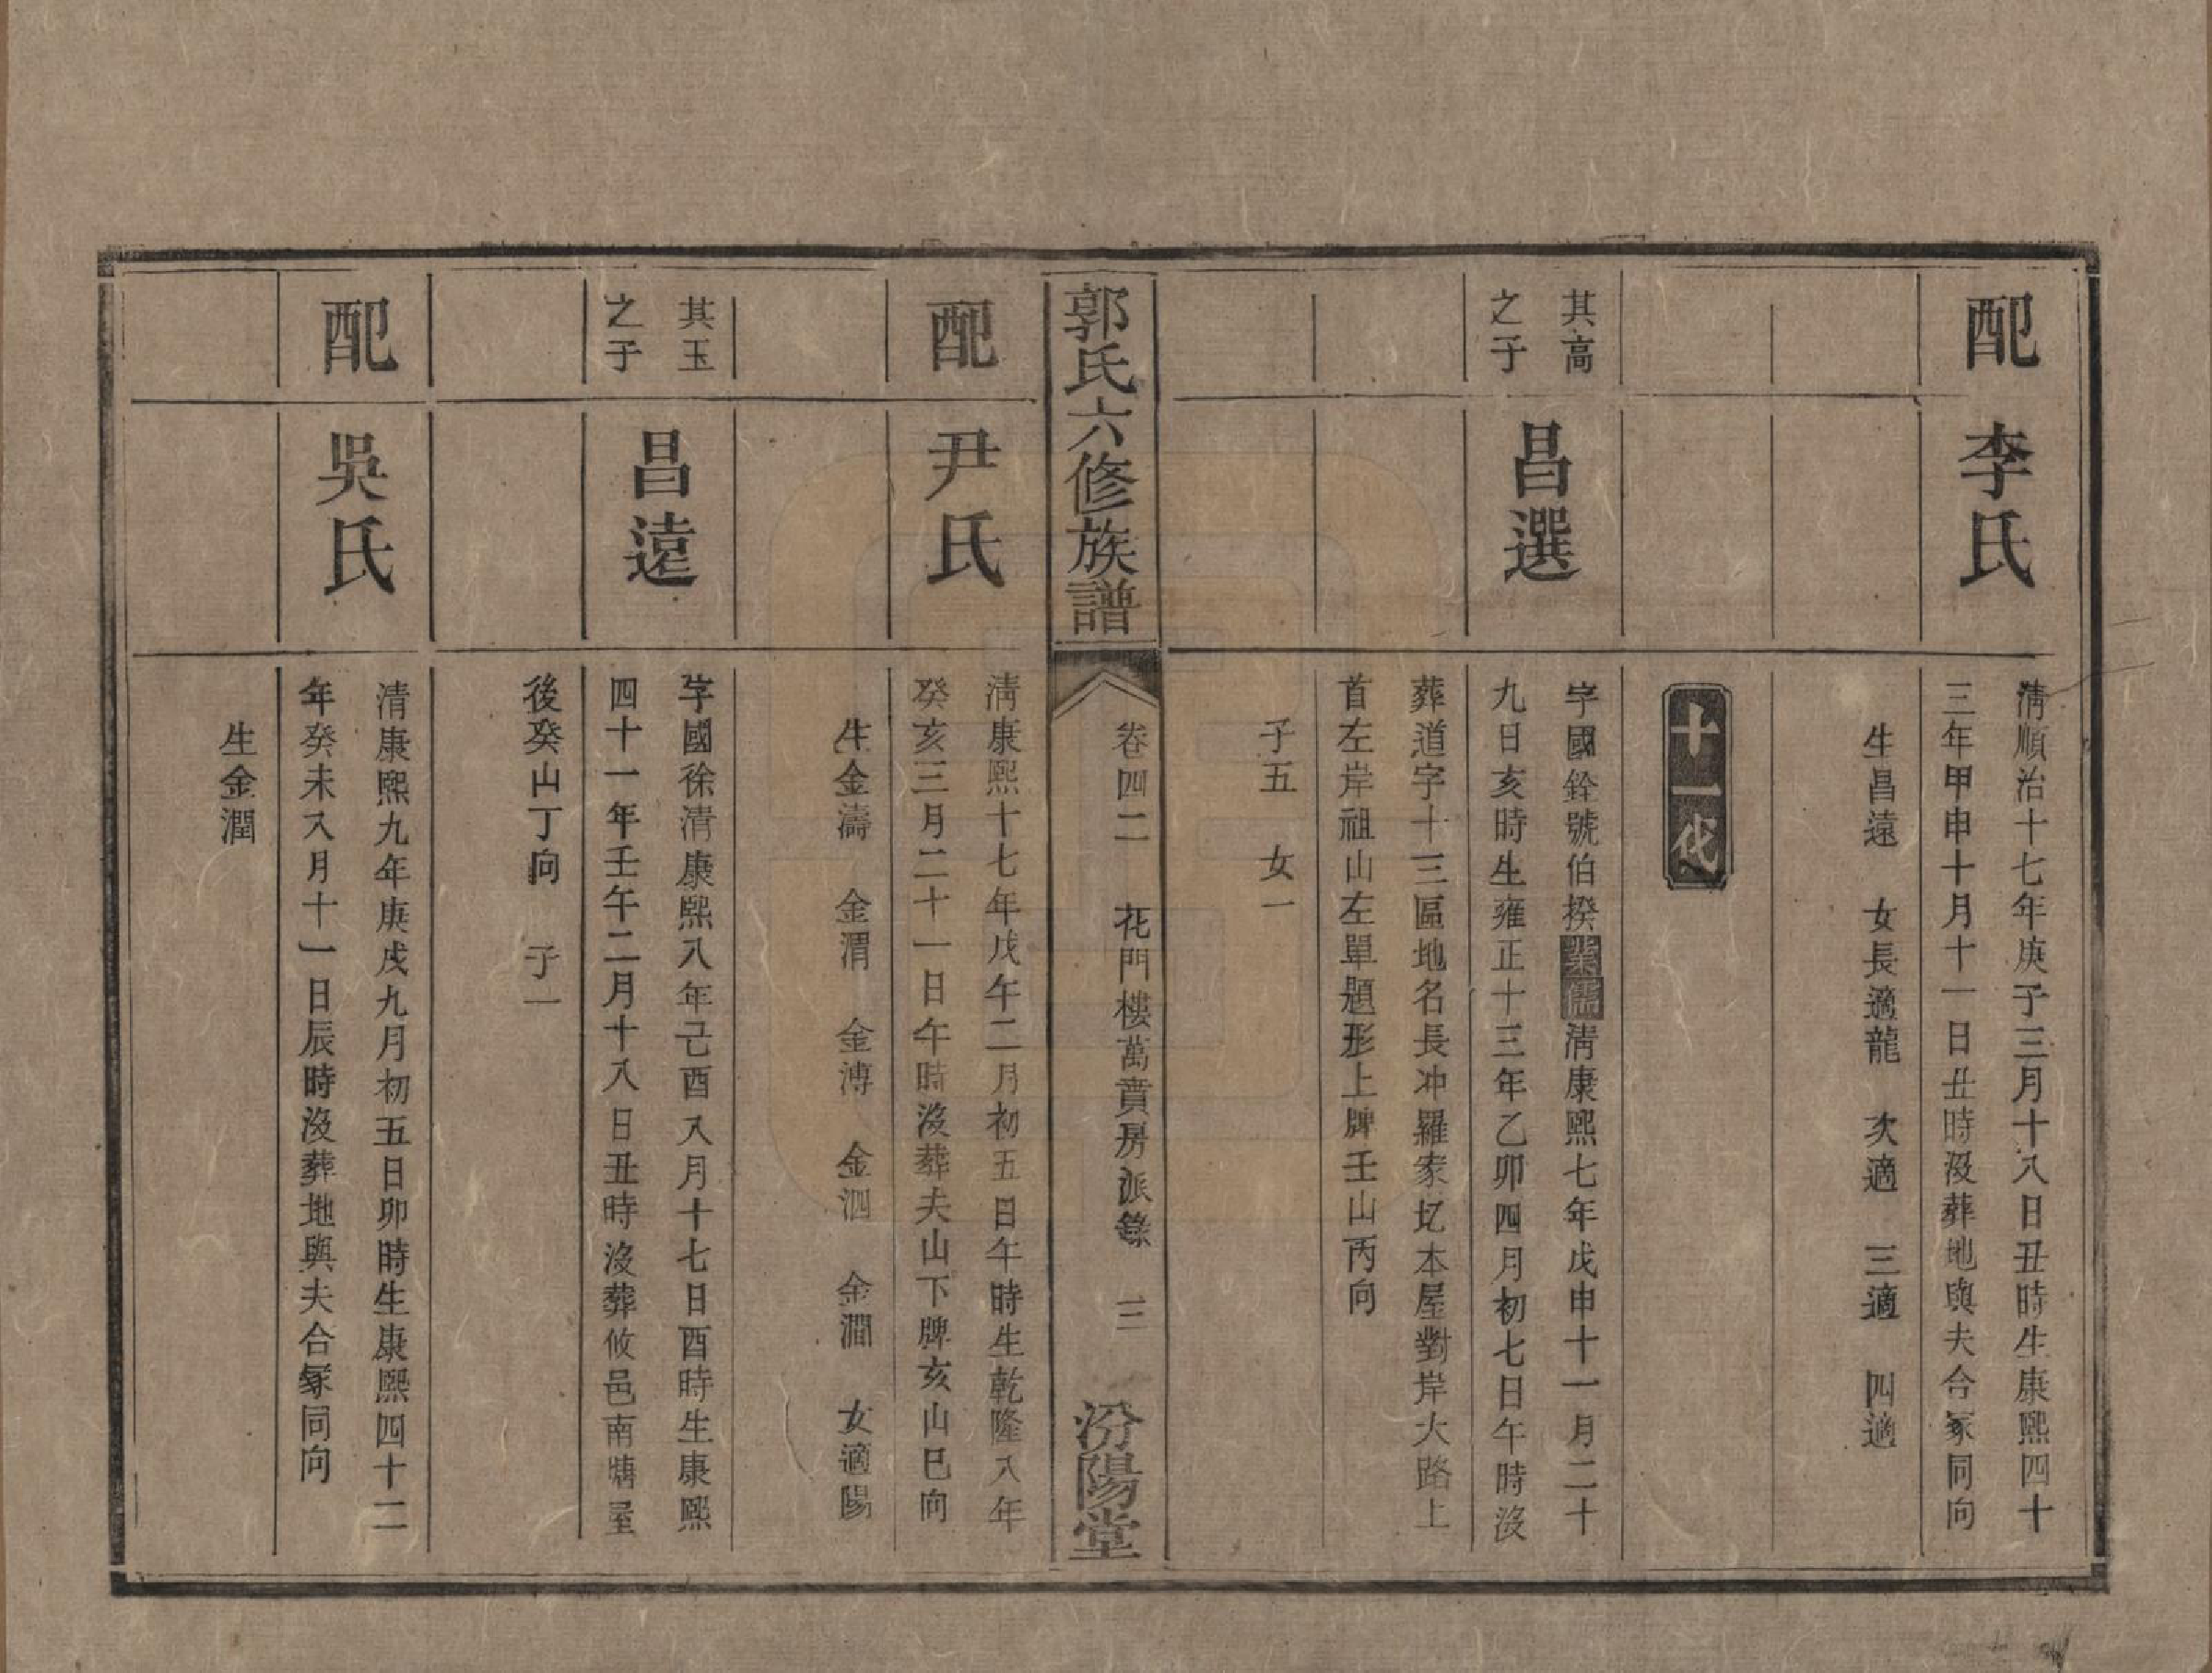 配
李氏
淸順治十七年庚子三月十八日丑時生康熙四十
三年甲申十月十一日丑時沒葬地與夫合冢同向
生昌遠　女長適龍　次適　三適　四適
十一代
其高
之子
昌選
字國銓號伯揆業儒淸康熙七年戊申十一月二十
九日亥時生雍正十三年乙卯四月初七日午時沒
葬道字十三區地名長冲羅家圫本屋對岸大路上
首左岸祖山左單題形上牌壬山丙向
子五　女一
郭氏六修族譜
卷四二　花門樓萬賁房派錄　三
汾陽堂
配
尹氏
淸康熙十七年戊午二月初五日午時生乾隆八年
癸亥三月二十一日午時沒葬夫山下牌亥山巳向
生金濤　金渭　金溥　金泗　金澗　女適陽
其玉
之子
昌遠
字國徐淸康熙八年己酉八月十七日酉時生康熙
四十一年壬午二月十八日丑時沒葬攸邑南塘屋
後癸山丁向　子一
配
吳氏
清康熙九年庚戌九月初五日卯時生康熙四十二
年癸未八月十一日辰時沒葬地與夫合冢同向
生金潤